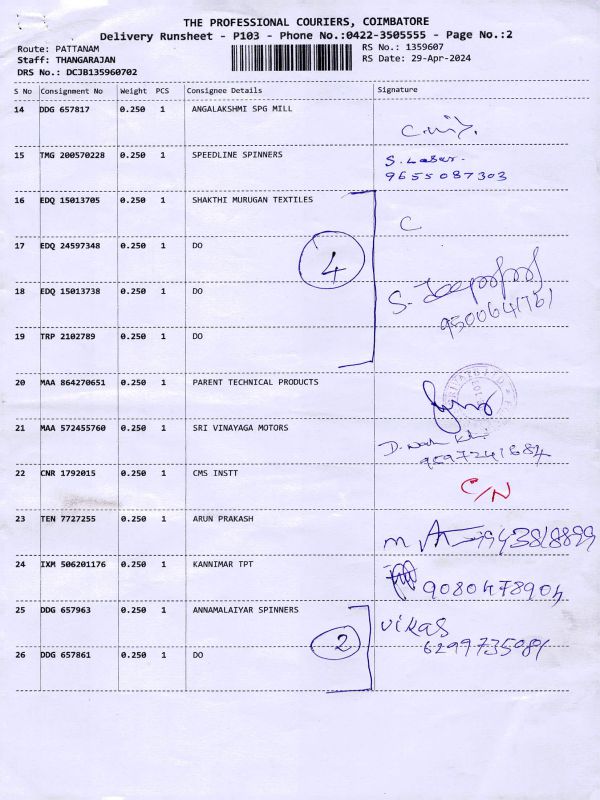 THE PROFESSIONAL COURIERS, COIMBATORE
Delivery Runsheet - P103 - Phone No.:0422-3505555 - Page No.:2
Route: PATTANAM
RS No.: 1359607
Staff: THANGARAJAN
RS Date: 29-Apr-2024
DRS No.: DCJB135960702
S No Consignment No Weight PCS Consignee Details Signature
14 DDG 657817 0.250 1 ANGALAKSHMI SPG MILL
15 TMG 200570228 0.250 1 SPEEDLINE SPINNERS S. Lasur.
9655087303
16 EDQ 15013705 0.250 1 SHAKTHI MURUGAN TEXTILES C
17 EDQ 24597348 0.250 1 DO
4
18 EDQ 15013738 0.250 1 DO S.
19 TRP 2102789 0.250 1 DO
20 MAA 864270651 0.250 1 PARENT TECHNICAL PRODUCTS
21 MAA 572455760 0.250 1 SRI VINAYAGA MOTORS D.
9597241684
22 CNR 1792015 0.250 1 CMS INSTT C/N
23 TEN 7727255 0.250 1 ARUN PRAKASH m 9943818899
24 IXM 506201176 0.250 1 KANNIMAR TPT 9080478904
25 DDG 657963 0.250 1 ANNAMALAIYAR SPINNERS Vikas
6299735081
2
26 DDG 657861 0.250 1 DO